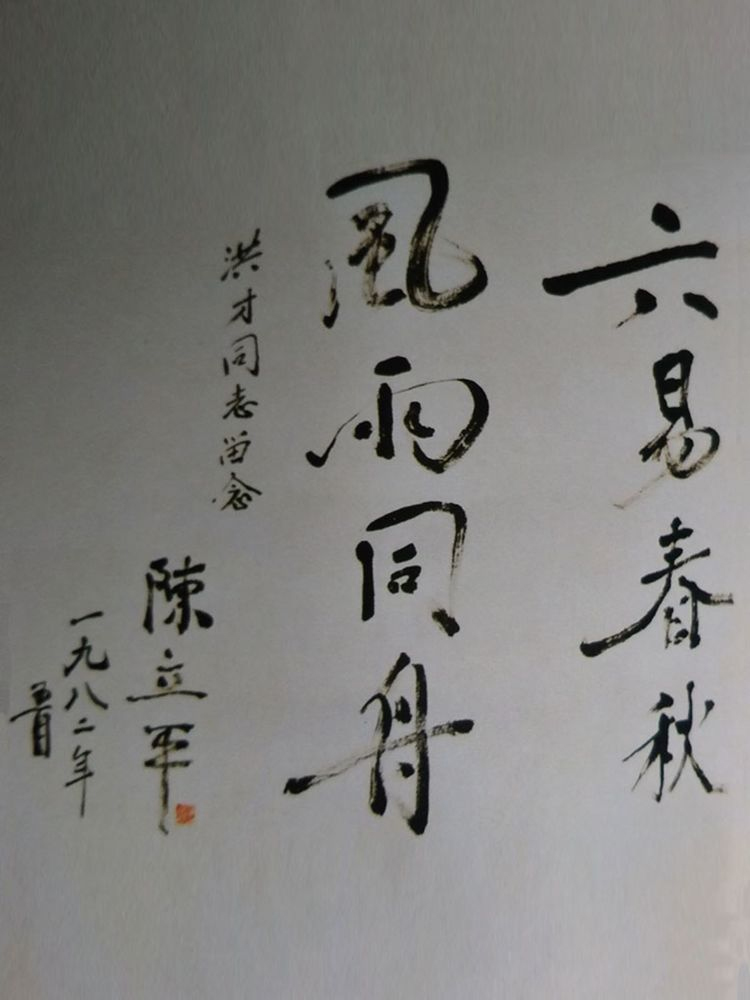 六易春秋
風雨同舟
洪才同志留念
陳立平
一九八二年
五月